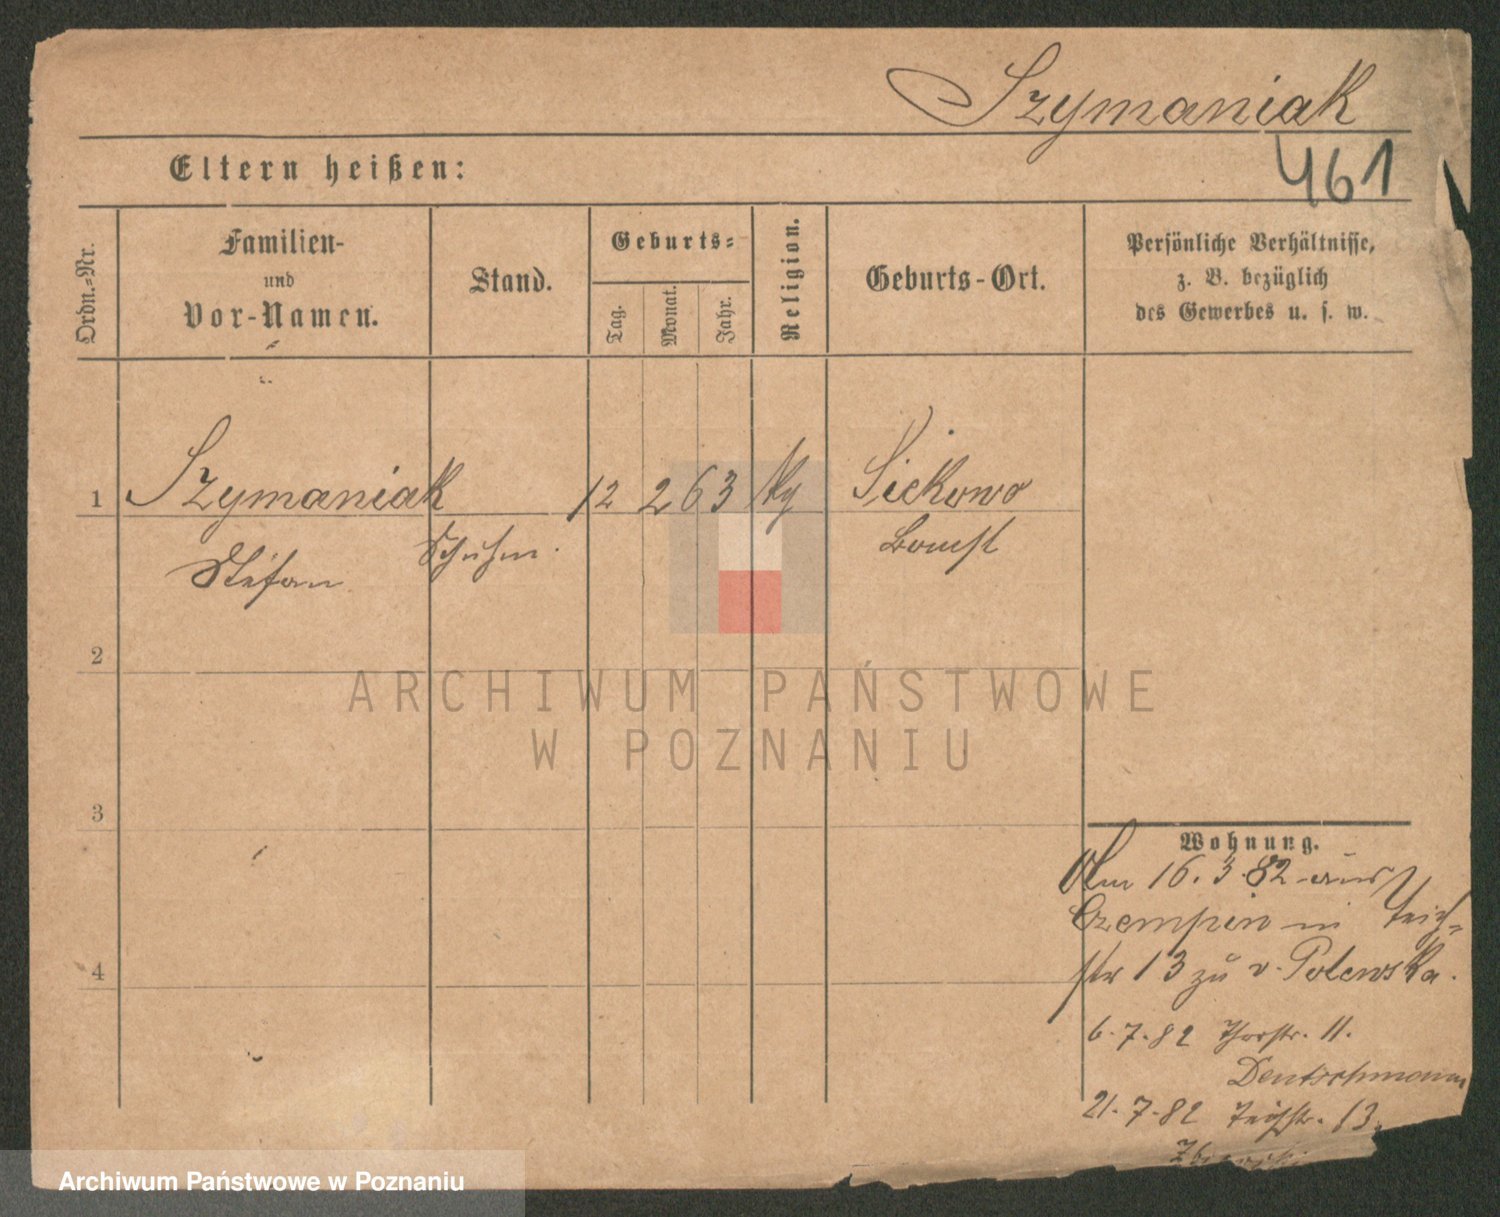 Szymaniak
461
Eltern heißen:
Ordn.-Nr.
Familien-
und
Vor-Namen.
Stand.
Geburts-
Tag.
Monat.
Jahr.
Religion.
Geburts-Ort.
Persönliche Verhältnisse,
z. B. bezüglich
des Gewerbes u. s. w.
1 Szymaniak 12 2 63 Siekowo
Stefan Schuhm. Bomst
2
3
4
Wohnung.
Am 16.3.82 aus
Czempin in Teich-
str 13 zu v. Polewska.
6.7.82 Thorstr. 11.
Deutschmann
21.7.82 Teichstr. 13.
ARCHIWUM PAŃSTWOWE
W POZNANIU
Archiwum Państwowe w Poznaniu